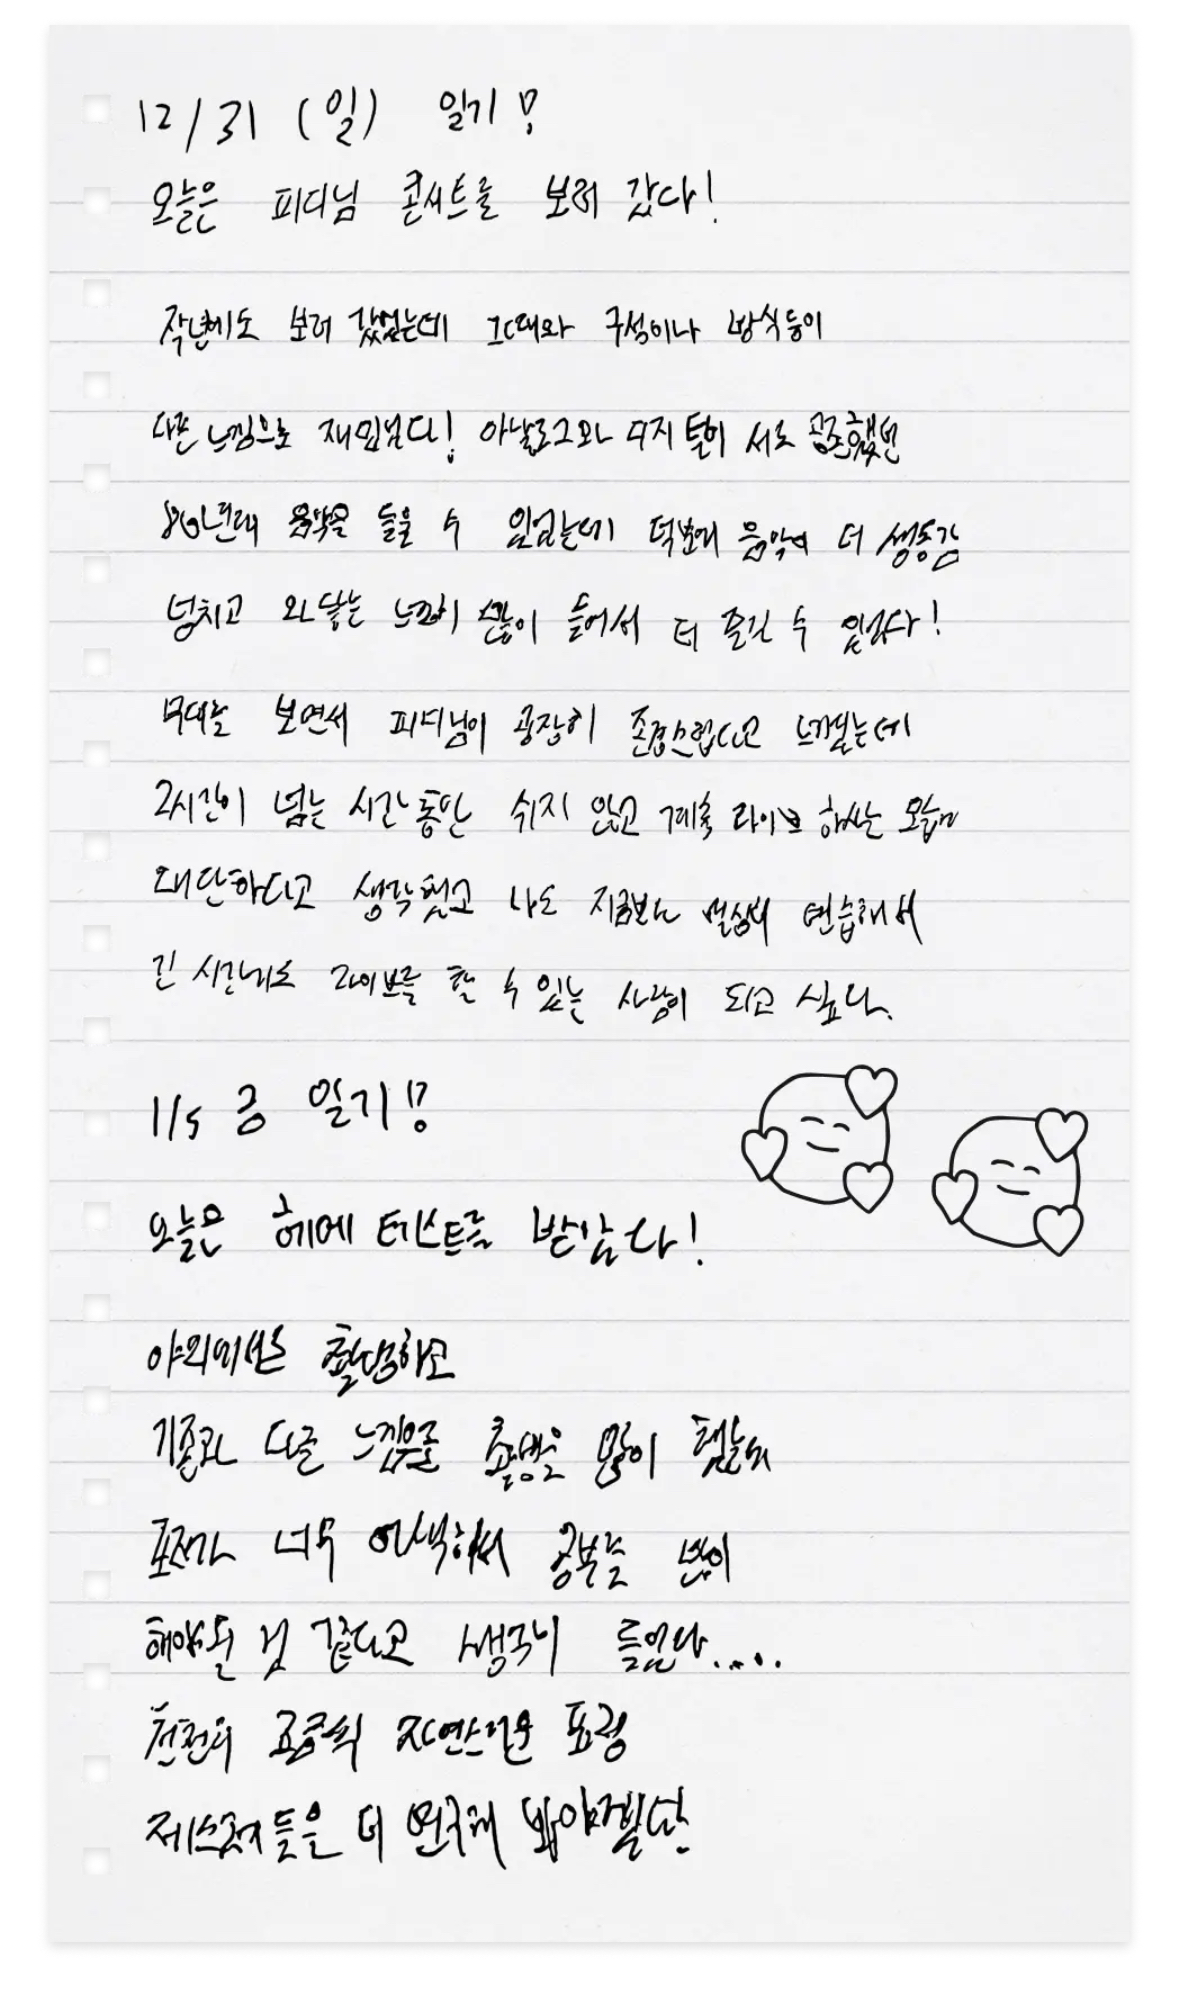 12/31 (일) 일기!
오늘은 피디님 콘서트를 보러 갔다!
작년에도 보러 갔었는데 그때와 구성이나 방식등이
다른 느낌으로 재밌넜다! 아날로그와 디지털이 서로 공존했던
80년대 음악을 들을 수 있었는데 덕분에 음악이 더 생동감
넘치고 와닿는 느낌이 많이 들어서 더 즐길 수 있었다!
무대를 보면서 피디님이 굉장히 존경스럽다고 느꼈는데
2시간이 넘는 시간동안 쉬지 않고 계속 라이브 하시는 모습이
대단하다고 생각했고 나도 지금보다 열심히 연습해서
긴 시간에도 라이브를 할 수 있는 사람이 되고 싶다.
1/5 금 일기!!
오늘은 헤메 테스트를 받았다!
야외에서는 촬영하고
기존과 다른 느낌으로 촬영을 많이 했는데
표정가 너무 어색해서 공부를 많이
해야될 것 같다고 생각이 들었다....
천천히 조금씩 자연스러운 표정
제스쳐들을 더 연구해 봐야겠다